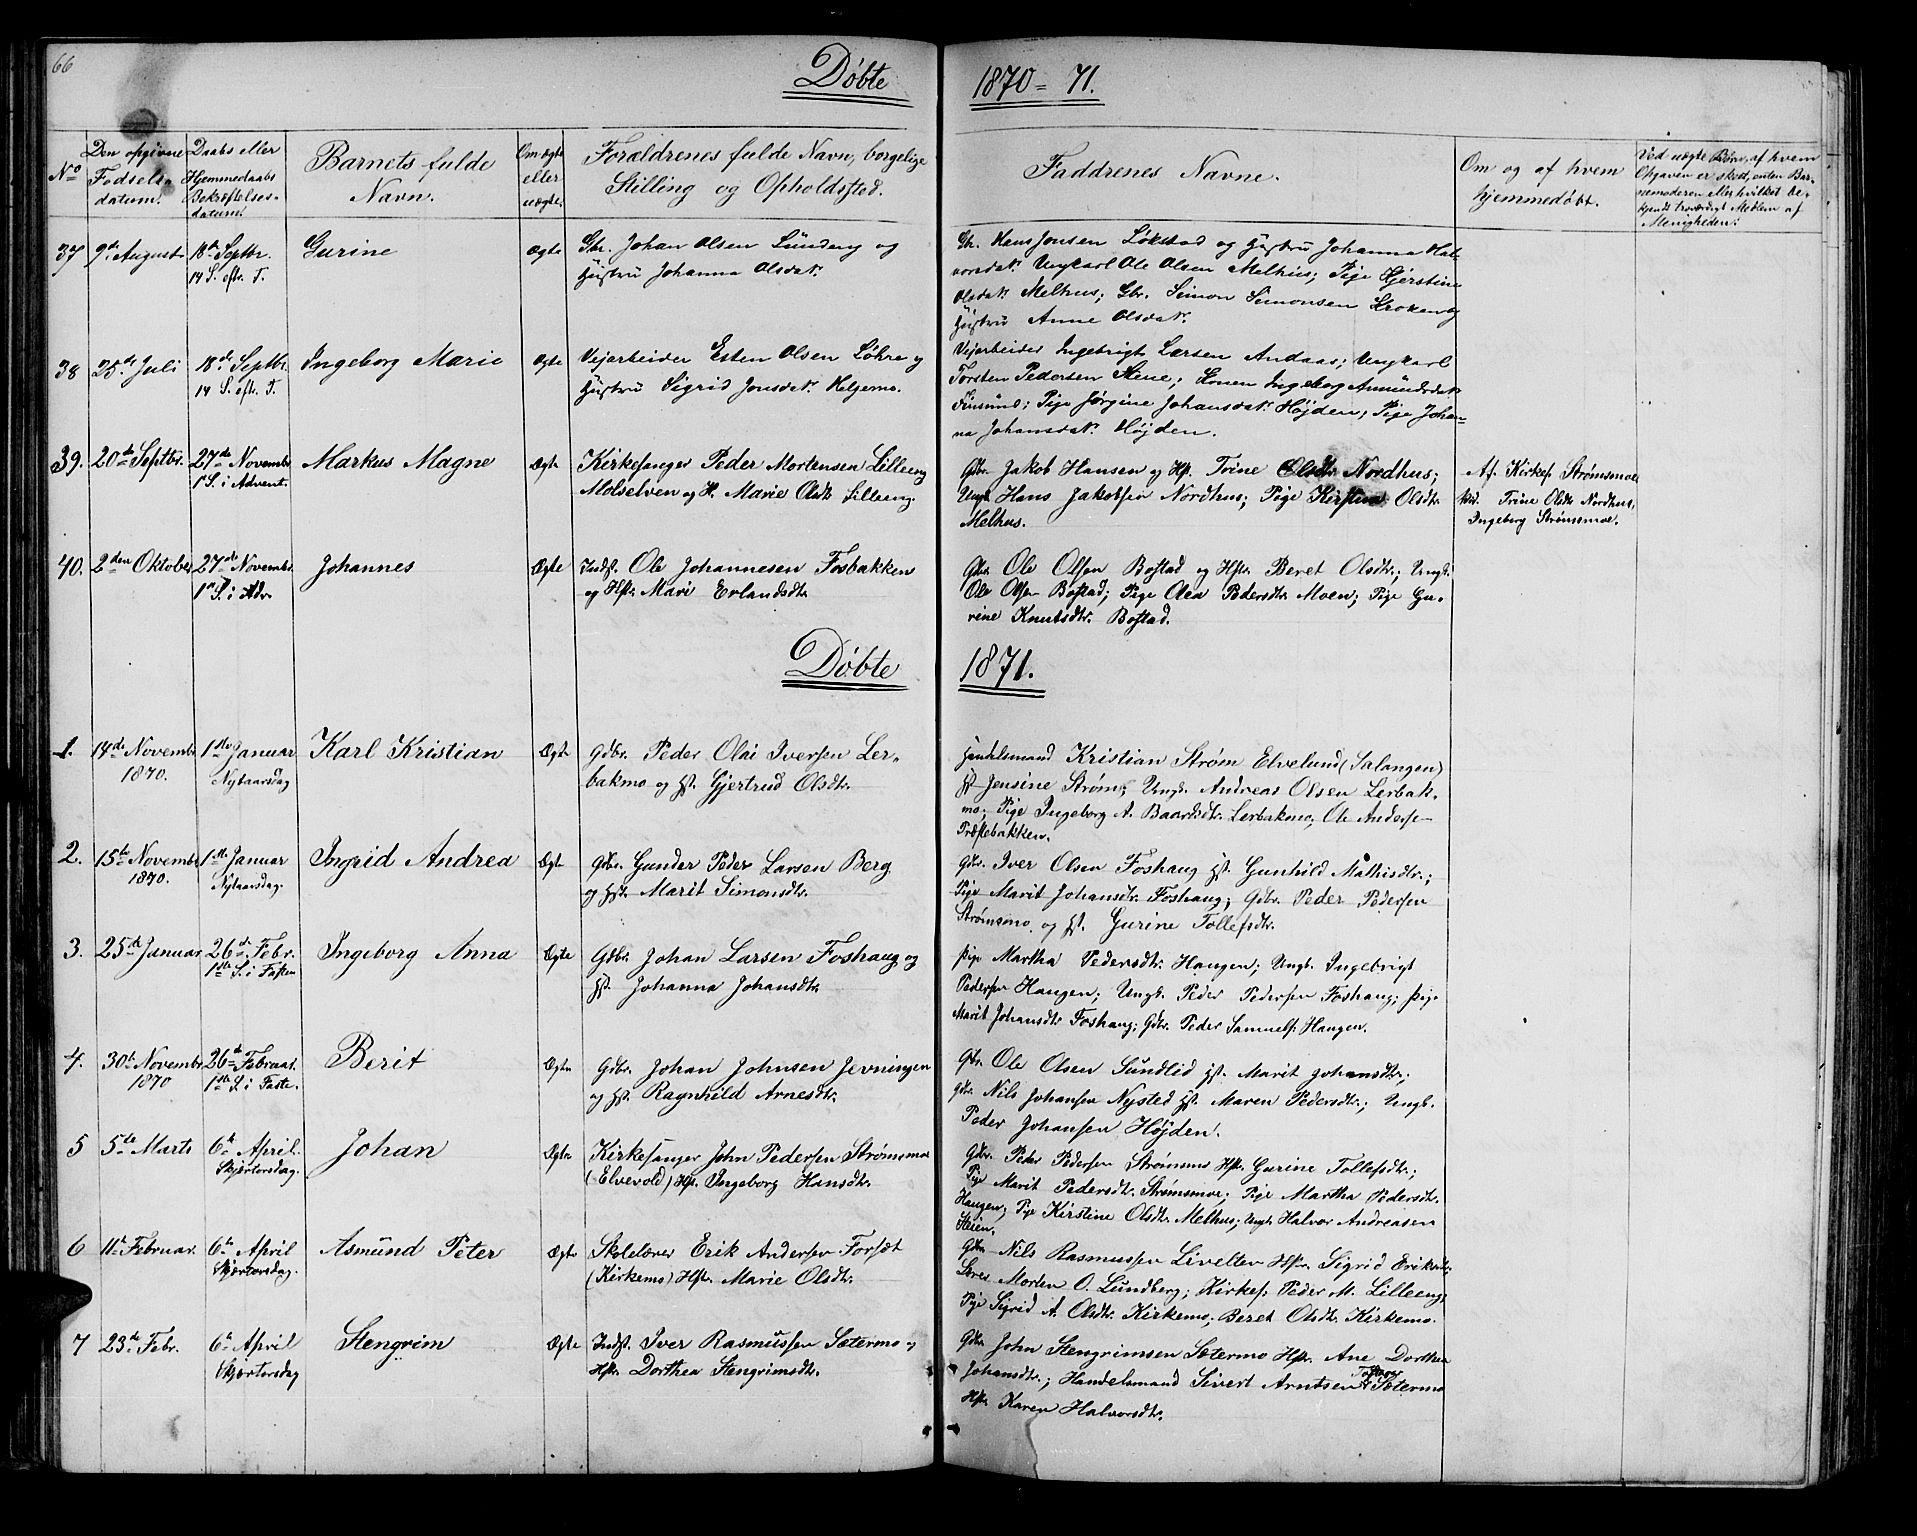 66
Døbte
1870 = 71.
No
Den opgivne Fødsels-datum.
Daabs eller Hjemmedaabs Bekræftelses-datum.
Barnets fulde Navn.
Om ægte eller uægte.
Forældrenes fulde Navn, borgelige Stilling og Opholdsted.
Faddrenes Navne.
Om og af hvem hjemmedøbt.
Ved uægte Børn, af hvem Opgaven er skeet, enten Barnemoderen eller hvilket bekjendt troværdigt Medlem af Menigheden.
37 9de August 18de Septbr. Gurine Ægte Gbr. Johan Olsen Lündeng og
14 S. eftr. T. Hustru Johanna Olsdatr.
Gbr. Hans Jonsen Løkstad og Hustru Johanna Hal-
vorsdatr. Ungkarl Ole Olsen Melhus; Pige Kjerstine
Olsdatr. Melhus; Gbr. Simon Simonsen Kroken og
Hustru Anne Olsdatr.
38 25de Juli 18de Septbr. Ingeborg Marie Ægte Vejarbeider Esten Olsen Løhre og
14 S. eftr. T. Hustru Sigrid Jonsdatr. Helgemo.
Vejarbeider Ingebrigt Larsen Andaas; Ungkarl
Torsten Pedersen Stene; Konen Ingeborg Amundsdatr.
Finsund; Pige Jørgine Johansdatr. Højden; Pige Johan-
na Johansdatr. Højden.
39. 20de Septbr. 27de Novembr. Markus Magne Ægte Kirkesanger Peder Mortensen Lilleeng
1ste S. i Advent. Molselven og H. Marie Olsdtr. Lilleeng.
Gbr. Jakob Hansen og Hst. Trine Olsdtr. Nordhus;
Ungk. Hans Jakobsen Nordhus; Pige Kirstine Olsdtr.
Melhus.
Af Kirkes. Strømsmoe
Trine Olsdtr. Nordhus,
Ingeborg Strømsmoe.
40. 2den Oktober 27de Novembr. Johannes Ægte Indst. Ole Johannesen Fosbakken
1ste S. i Adv. og Hstr. Mari Erlandsdtr.
Gbr. Ole Olsen Bostad og Hstr. Beret Olsdtr.; Ungk.
Ole Olsen Bostad; Pige Olea Pedersdtr. Moen; Pige Gu-
rine Knutsdtr. Bostad.
Døbte
1871.
1. 14de Novembr. 1ste Januar Karl Kristian Ægte Gdbr. Peder Olai Iversen Ler-
1870. Nytaarsdag bakmo og Hst. Gjertrud Olsdtr.
Handelsmand Kristian Strøm Elvelund (Salangen)
Hst Jensine Strøm; Ungk. Andreas Olsen Lerbak-
mo; Pige Ingeborg A. Baardsdtr. Lerbakmo, Ole Andersen
Præstebakken.
2. 15de Novembr. 1ste Januar Ingrid Andrea Ægte Gdbr. Gunder Peder Larsen Berg
1870. Nytaarsdag. og Hst. Marit Simonsdtr.
Gdbr. Iver Olsen Foshaug Hst. Gunhild Mathisdtr.;
Pige Marit Johansdtr. Foshaug; Gdbr. Peder Pedersen
Strømsmo og Hst. Gurine Tollefsdtr.
3. 25de Januar 26de Febr. Ingeborg Anna Ægte Gdbr. Johan Larsen Foshaug og
1ste S. i Fasten Hst. Johanna Johansdtr.
Pige Martha Pedersdtr. Haugen; Ungk. Ingebrigt
Pedersen Haugen; Ungk. Peder Pedersen Foshaug; Pige
Marit Johansdtr. Foshaug; Gdbr. Peder Samuels. Haugen.
4. 30te Novembr. 26de Februar. Berit Ægte Gdbr. Johan Johnsen Jevningen
1870 1ste S. i Faste. og Hst. Ragnhild Arnesdtr.
Gbr. Ole Olsen Sundlid Hst. Marit Johansdtr.;
Gdbr. Nils Johansen Nysted Hst. Maren Pedersdtr.; Ungk.
Peder Johansen Højden.
5 5te Marts 6te April. Johan Ægte Kirkesanger John Pedersen Strømsmoe
Skjærtorsdag. (Elvevold) Hst. Ingeborg Hansdtr.
Gdbr. Peder Pedersen Strømsmo Hst. Gurine Tollefsdtr.;
Pige Marit Pedersdtr. Strømsmoe; Pige Martha Pedersdtr.
Haugen; Pige Kirstine Olsdtr. Melhus; Ungk. Halvor Andreasen
Steien.
6 11te Februar. 6te April Asmund Peter Ægte Skolelærer Erik Andersen Forsæt
Skjærtorsdag. (Kirkemo) Hst. Marie Olsdtr.
Gdbr. Nils Rasmussen Livelten Hst. Sigrid Eriksdtr.;
Morten O. Lundberg; Kirkes. Peder M. Lilleeng,
Pige Sigrid A. Olsdtr. Kirkemo; Beret Olsdtr. Kirkemo.
7 23de Febr. 6te April Stengrim Ægte Indst. Iver Rasmussen Sætermo og
Skjærtorsdag Hst. Dorthea Stengrimsdtr.
Gdbr. John Stengrimsen Sætermo Hst. Ane Dorthea
Johansdtr.; Handelsmand Sivert Arntsen Sætermo
Hst. Karen Halvorsdtr.